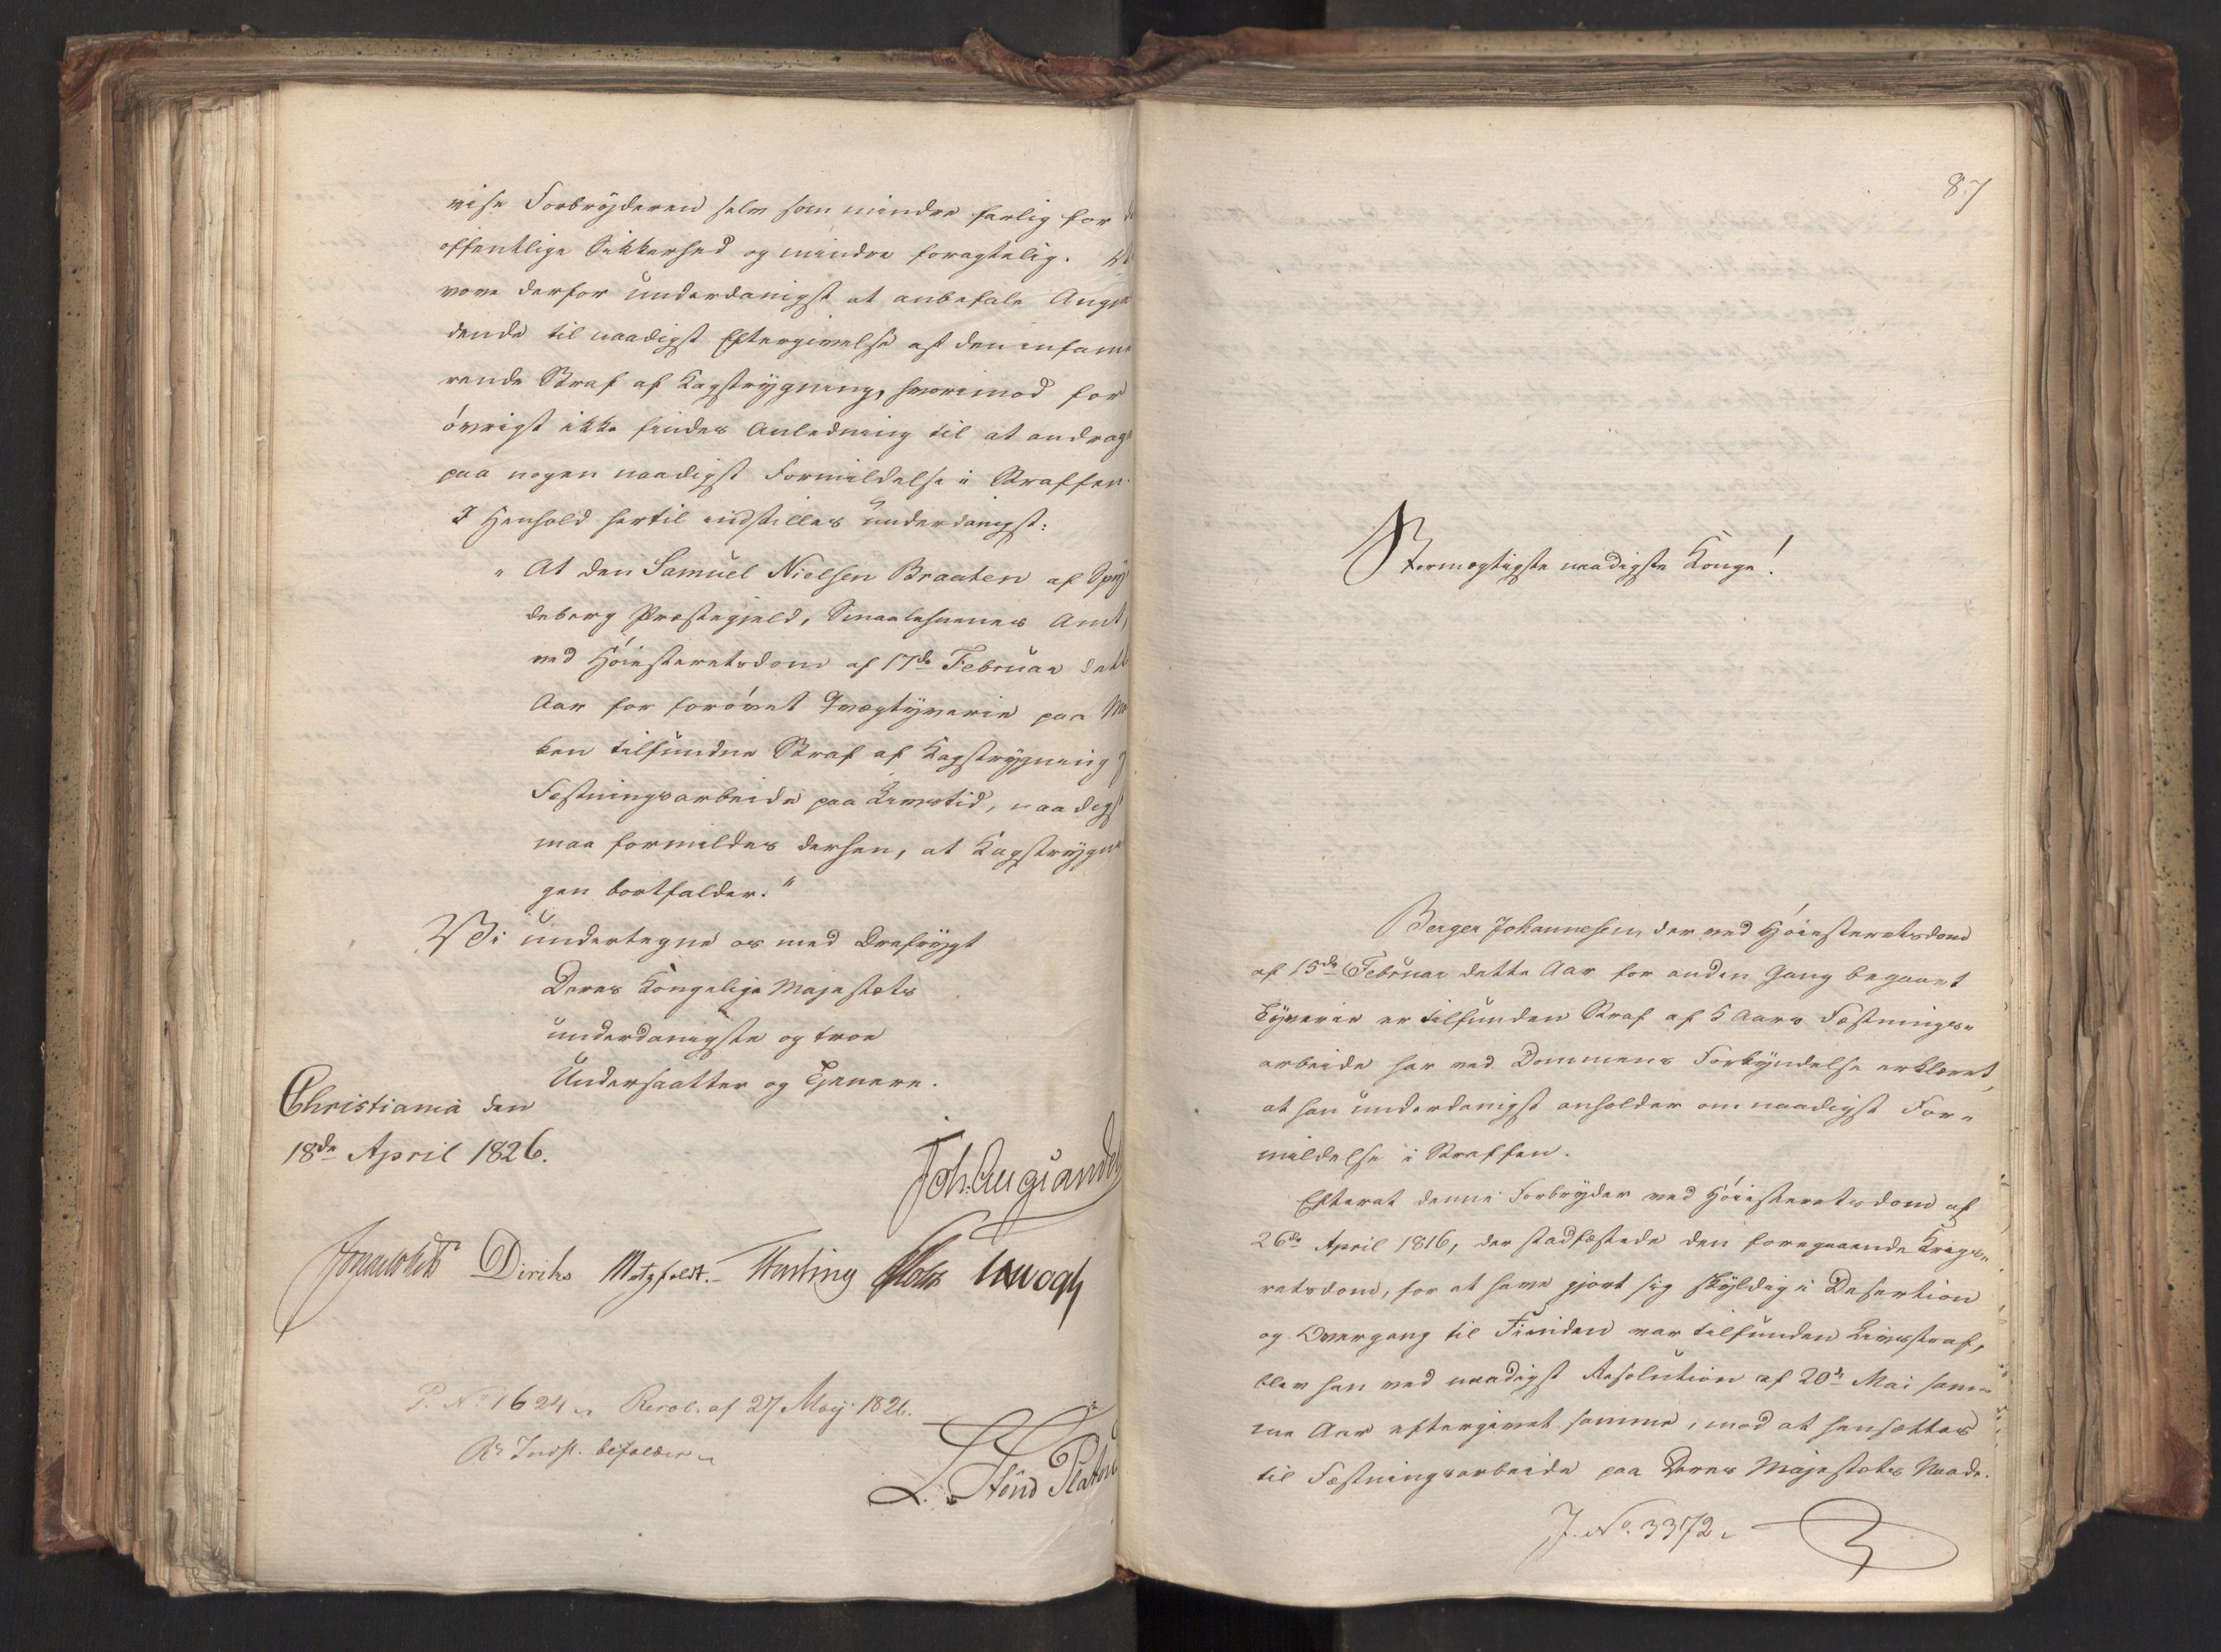 vise Forbryderen selv som mindre farlig for
offentlige Sikkerhed og mindre foragtelig.
vove derfor underdanigst at anbefale Angi
dende til naadigst Eftergivelse af den infame
rende Straf af Kagstrygning, hvorimod for
øvrigt ikke findes Anledning til at andrage
paa nogen naadigst Formildelse i Straffen.
I Henhold hertil indstilles underdanigst:
" At den Samuel Nielsen Braaten af Spy
deberg Præstegjeld, Smaalehnenes Amt,
ved Høiesteretsdom af 17de Februar dette
Aar for forøvet Qvægtyverie paa Ma
ken tilfundne Straf af Kagstrygning
Fæstningsarbeide paa Livstid, naadigst
maa formildes derhen, at Kagstrygnin
gen bortfalder."
Vi undertegne os med Ærefrygt
Deres Kongelige Majestæts
underdanigste og troe
Undersaatter og Tjenere.
Christiania den
18de April 1826.
Joh. Aug Sandels
Diriks Motzfeldt. Fasting Krogh
P. No 1624. Resol. af 27 May 1826.
As Indst. bifalder
87
Stormægtigste naadigste Konge!
Berger Johannesen, der ved Høiesteretsdom
af 15de Februar dette Aar for anden Gang begaaet
Tyverie er tilfunden Straf af 5 Aars Fæstnings-
arbeide har ved Dommens Forkyndelse erklæret,
at han underdanigst anholder om naadigst For-
mildelse i Straffen.
Efterat denne Forbryder ved Høiesteretsdom af
26de April 1816, der stadfæstede den foregaaende Krigs-
retsdom, for at have gjort sig skyldig i Desertion
og Overgang til Fienden var tilfunden Livsstraf,
blev han ved naadigst Resolution af 20de Mai sam-
me Aar eftergivet samme, mod at hensættes
til Fæstningsarbeide paa Deres Majestæts Naade.
J. No. 3372.